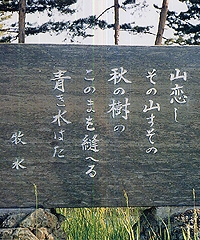 山恋し
その山すその
秋の樹の
このまを縫へる
青き水はた
牧水